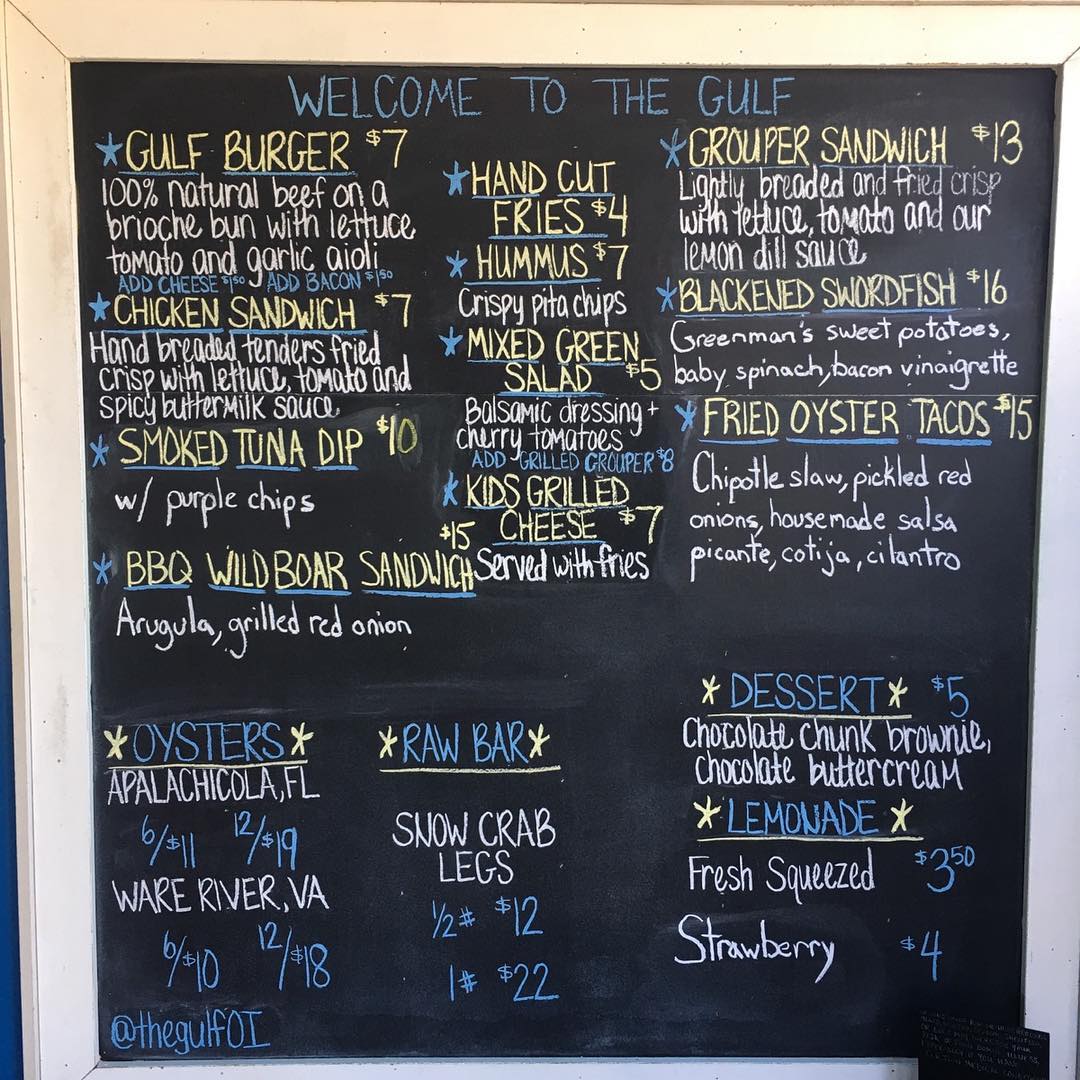 WELCOME TO THE GULF
*GULF BURGER $7
100% natural beef on a
brioche bun with lettuce
tomato and garlic aioli
ADD CHEESE $1.50 ADD BACON $1.50
*CHICKEN SANDWICH $7
Hand breaded tenders fried
crisp with lettuce, tomato and
spicy buttermilk sauce
*SMOKED TUNA DIP $10
w/ purple chips
*BBQ WILD BOAR SANDWICH $15
Arugula, grilled red onion
*HAND CUT
FRIES $4
*HUMMUS $7
Crispy pita chips
*MIXED GREEN
SALAD $5
Balsamic dressing +
cherry tomatoes
ADD GRILLED GROUPER $8
*KIDS GRILLED
CHEESE $7
Served with fries
*GROUPER SANDWICH $13
Lightly breaded and fried crisp
with lettuce, tomato and our
lemon dill sauce
*BLACKENED SWORDFISH $16
Greenman's sweet potatoes,
baby spinach, bacon vinaigrette
*FRIED OYSTER TACOS $15
Chipotle slaw, pickled red
onions, housemade salsa
picante, cotija, cilantro
*OYSTERS*
APALACHICOLA, FL
6/$11 12/$19
WARE RIVER, VA
6/$10 12/$18
@thegulfOI
*RAW BAR*
SNOW CRAB
LEGS
1/2# $12
1# $22
*DESSERT* $5
Chocolate chunk brownie,
chocolate buttercream
*LEMONADE*
Fresh Squeezed $3.50
Strawberry $4